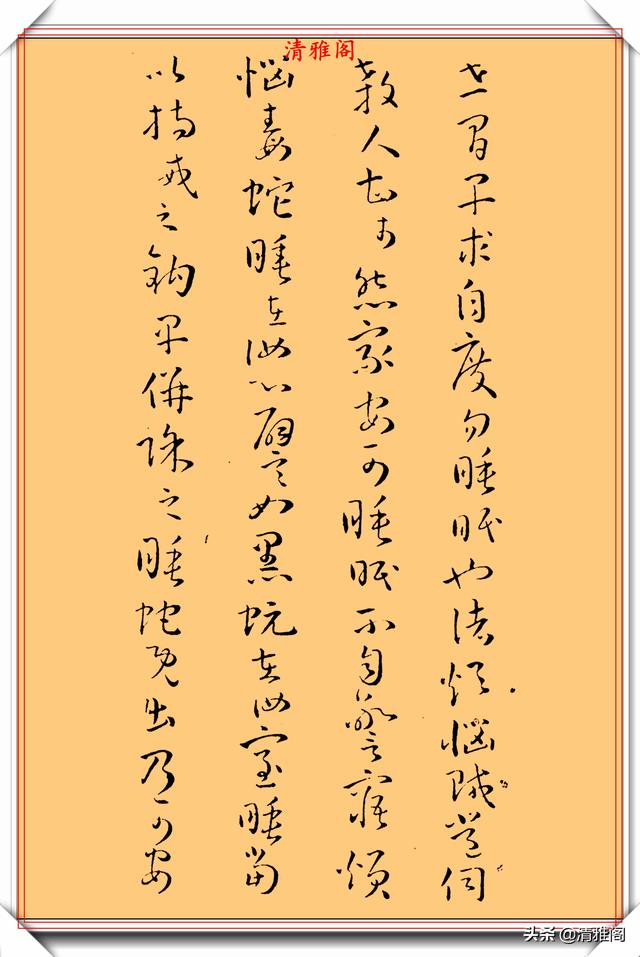 清雅阁
世間早求自度勿睡眠也諸煩惱賊常伺
殺人甚於怨家安可睡眠不自警寤煩
惱毒蛇睡在汝心譬如黑蚖在汝室睡當
以持戒之鉤早併除之睡蛇既出乃可安
头条 @清雅阁